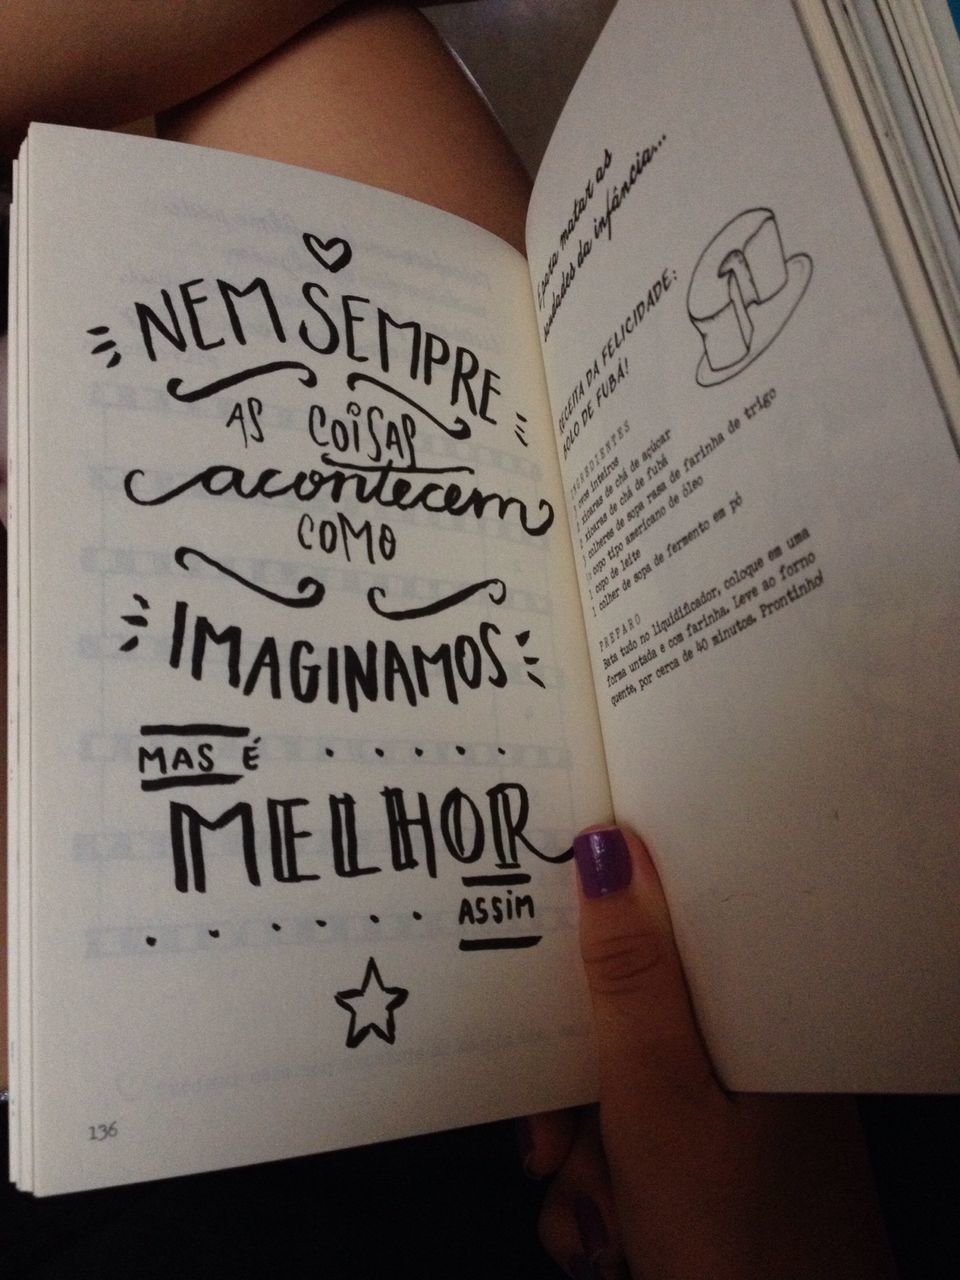 NEM SEMPRE
AS COISAS
acontecem
COMO
IMAGINAMOS
MAS É
MELHOR
ASSIM
136
para matar as
saudades da infância...
RECEITA DA FELICIDADE:
BOLO DE FUBÁ!
INGREDIENTES
ovos inteiros
xícaras de chá de açúcar
xícaras de chá de fubá
colheres de sopa rasa de farinha de trigo
copo tipo americano de óleo
1 copo de leite
1 colher de sopa de fermento em pó
PREPARO
Bata tudo no liquidificador, coloque em uma
forma untada e com farinha. Leve ao forno
quente, por cerca de 40 minutos. Prontinho!